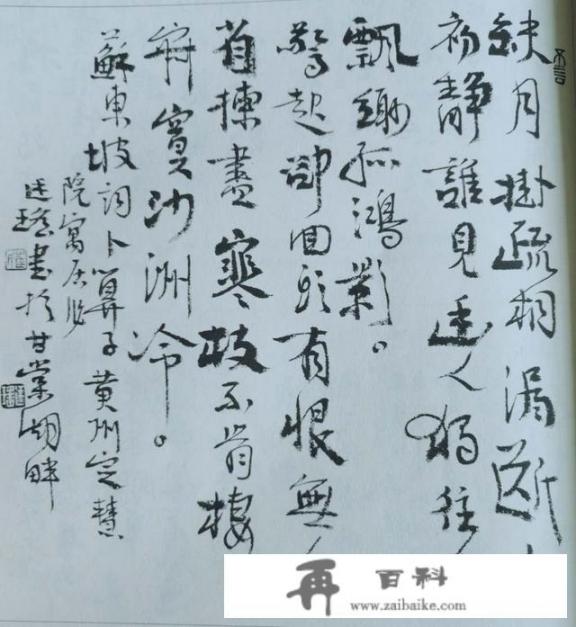 缺月掛疏桐漏断
初靜誰見幽人獨往
飄緲孤鴻影。
驚起卻回頭有恨無
省揀盡寒枝不肯棲
寂寞沙洲冷。
蘇東坡詞卜算子黄州定慧
院寓居作
書於甘棠湖畔
再百科
www.zaibaike.com